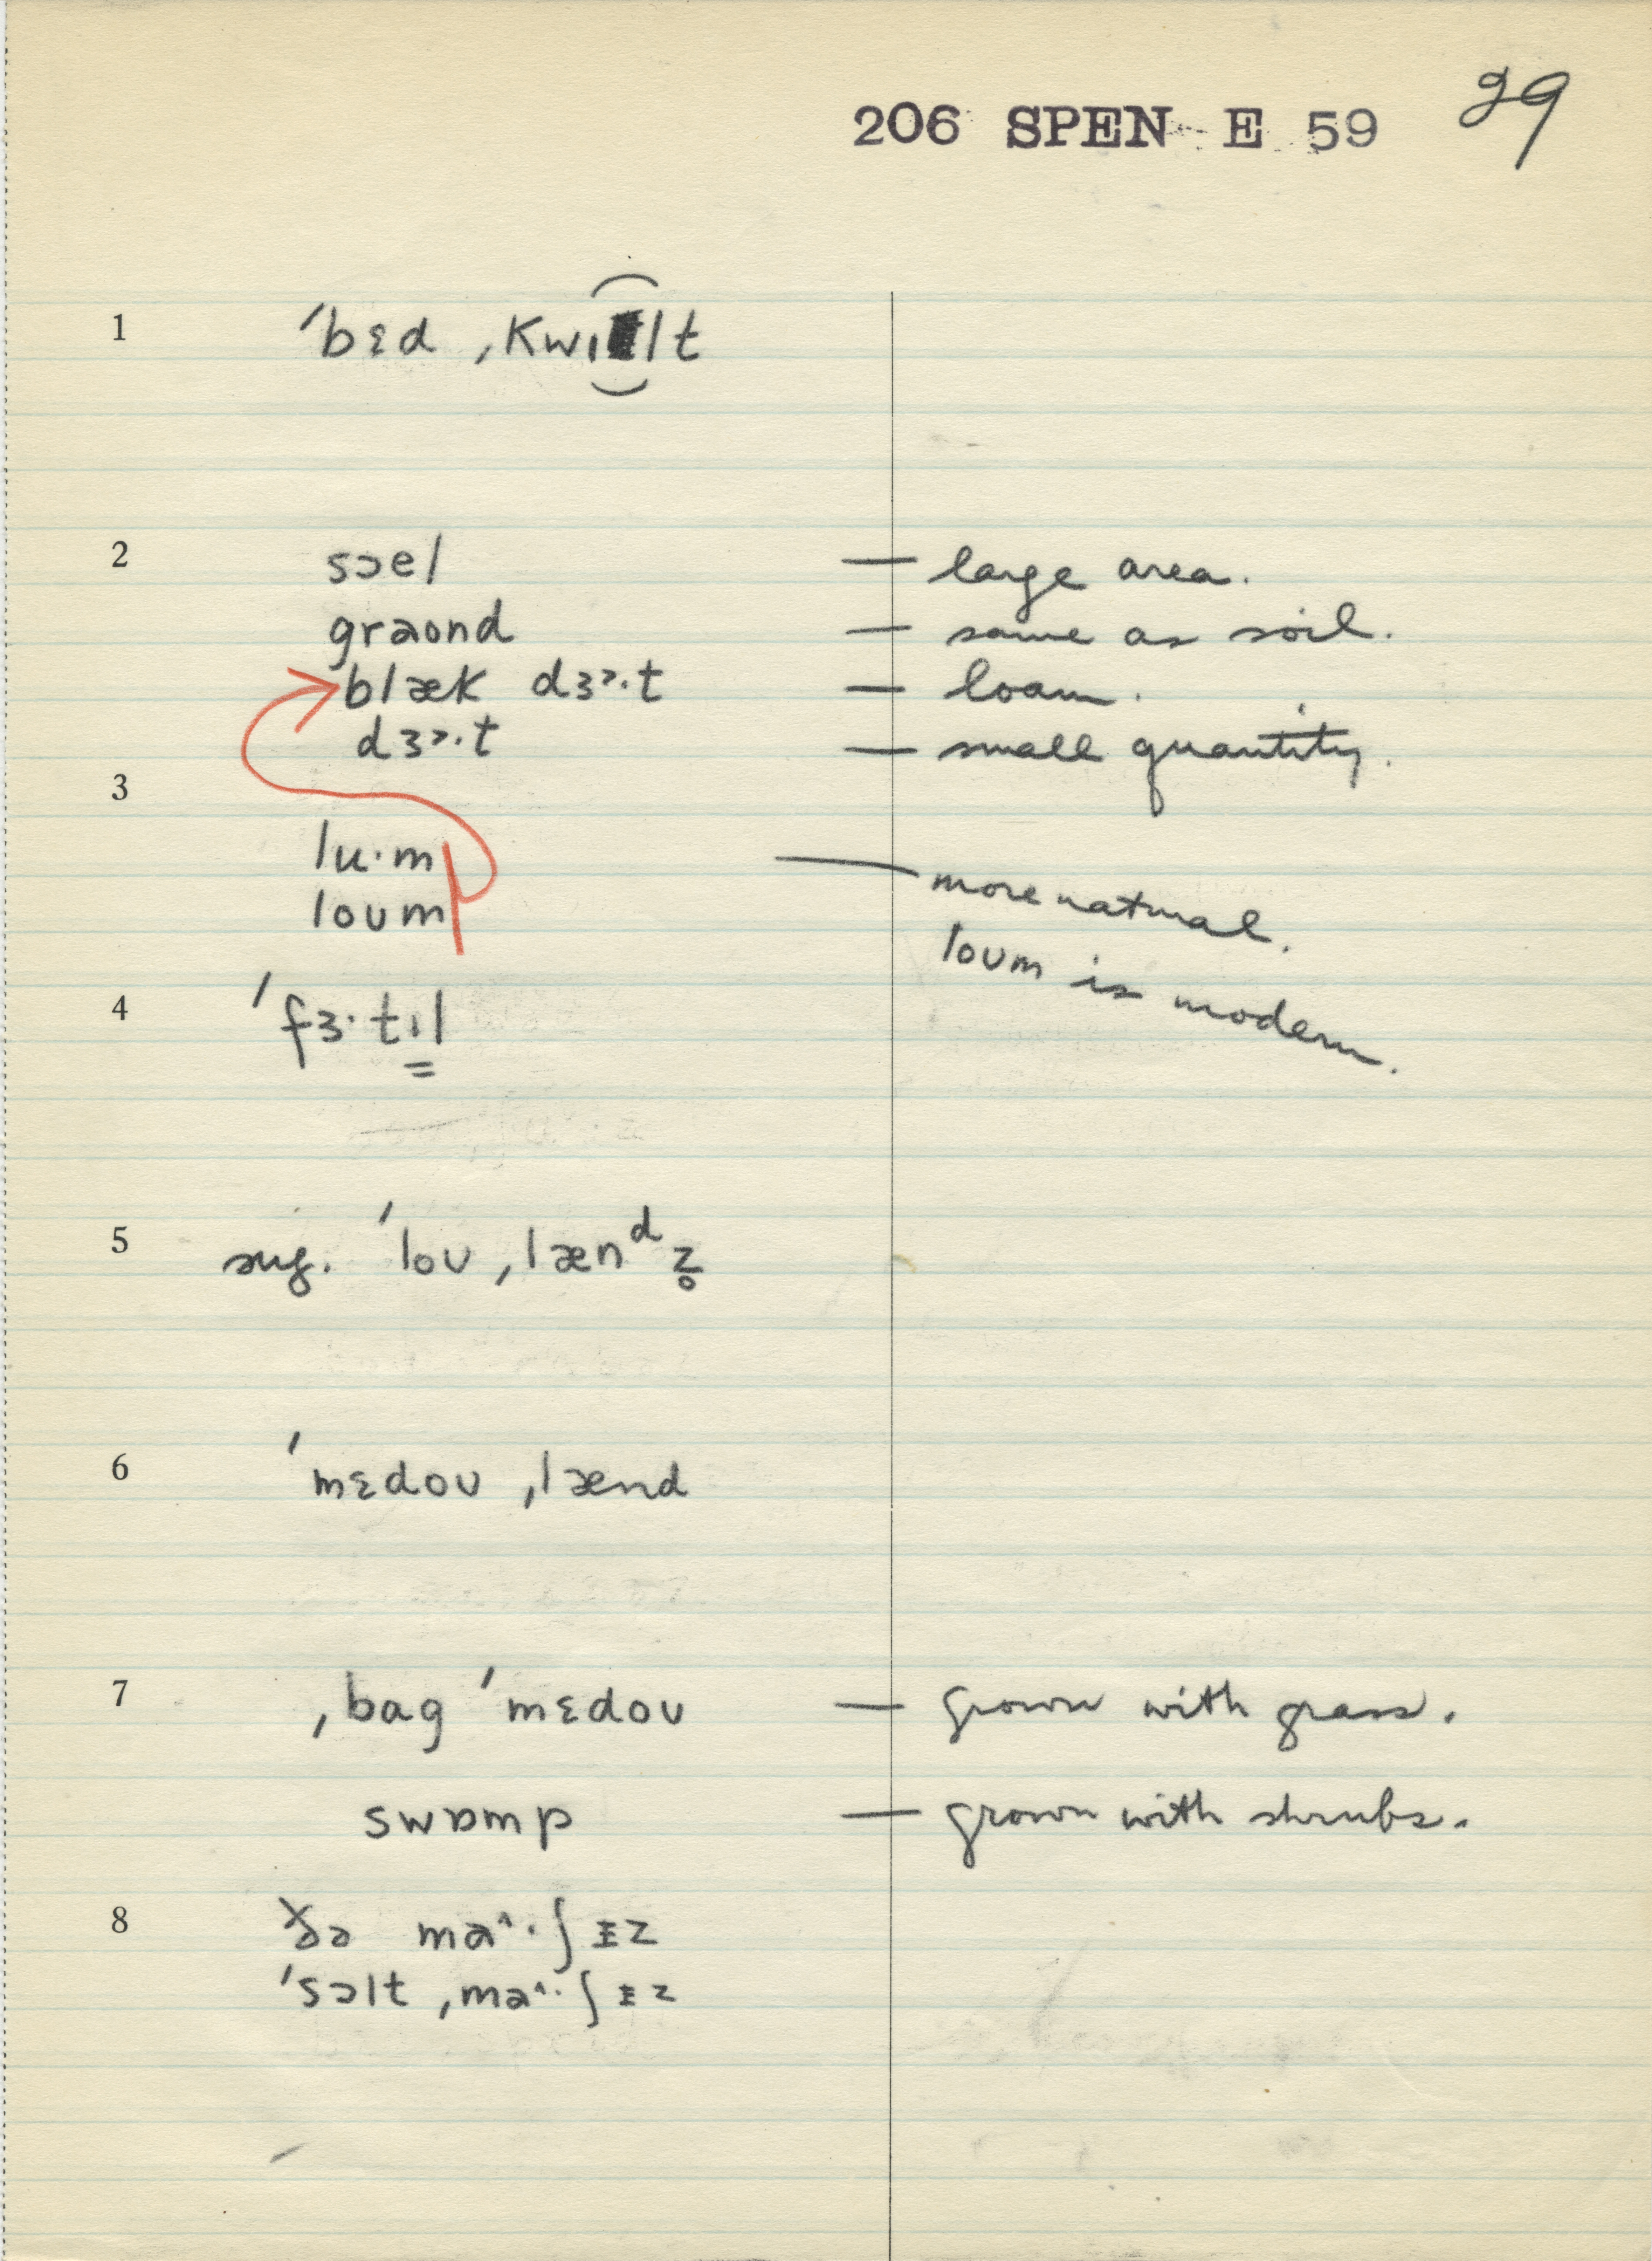 206 SPEN E 59 29
1 ˈbɛd ˌkwɪlt
2 sɔel — large area.
graʊnd — same as soil.
blæk dɜ˞·t — loam.
dɜ˞·t — small quantity.
3
lu·m — more natural.
loʊm
loʊm is modern.
4 ˈfɜ·tɪl
5 sug. ˈloʊ ˌlænᵈz̥
6 ˈmɛdoʊ ˌlænd
7 ˌbag ˈmɛdoʊ — grown with grass.
swɒmp — grown with shrubs.
8 ðə ma^·ʃɪz
ˈsɔlt ˌma^·ʃɪz